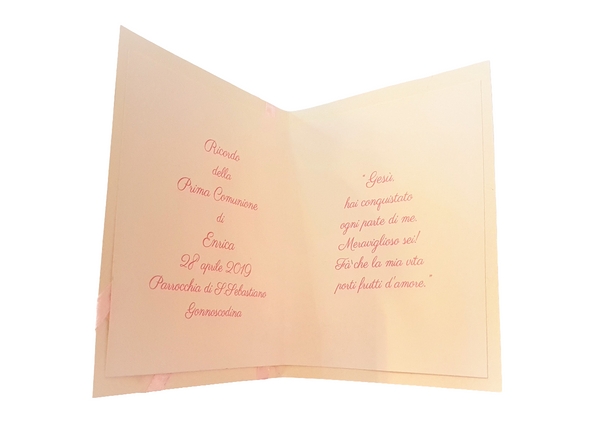 Ricordo
della
Prima Comunione
di
Enrica
28 aprile 2019
Parrocchia di S.Sebastiano
Gonnoscodina
"Gesù,
hai conquistato
ogni parte di me.
Meraviglioso sei!
Fà che la mia vita
porti frutti d'amore."